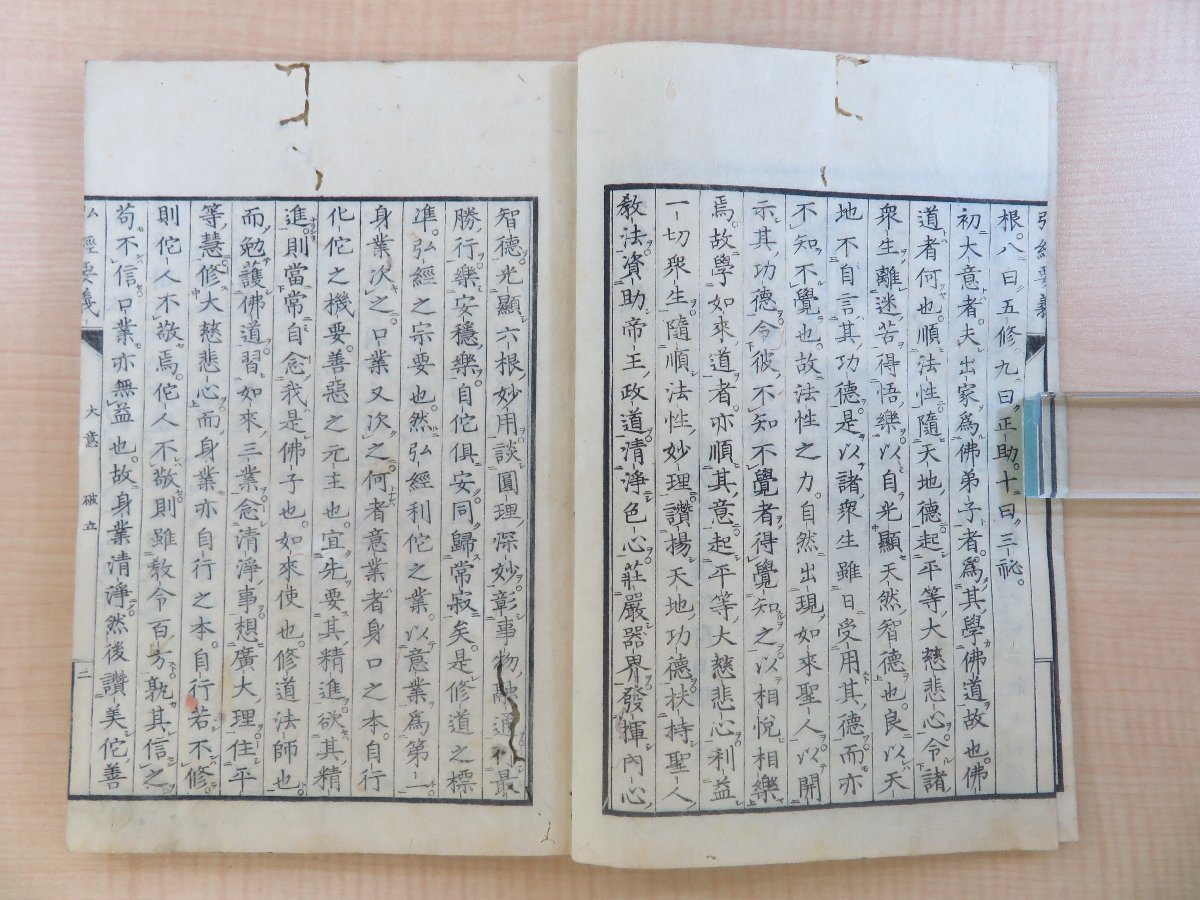 根。八曰五修。九曰正助。十曰三祕。
初大意者。夫出家爲佛弟子者。爲其學佛道故也。佛
道者何也。順法性隨天地德。起平等大慈悲心。令諸
衆生離迷苦得悟樂。以自光顯天然智德也。良以天
地不自言其功德。是以諸衆生雖日受用其德而亦
不知不覺也。故法性之力。自然出現如來聖人。以開
示其功德。令彼不知不覺者得覺知之。以相悅相樂
焉。故學如來道者。亦順其意。起平等大慈悲心。利益
一切衆生。隨順法性妙理。讚揚天地功德。扶持聖人
敎法。資助帝王政道。清淨色心。莊嚴器界。發揮內心
智德。光顯六根妙用。談圓理深妙。彰事物融通
勝。行樂安穩樂。自佗俱安。同歸常寂矣。是修道之標
準。弘經之宗要也。然弘經利佗之業。以意業爲第一
身業次之。口業又次之。何者意業者身口之本。自行
化佗之機要。善惡之元主也。宜先要其精進。欲其精
進。則當常自念。我是佛子也。如來使也。修道法師也
而勉護佛道。習如來三業。念清淨事。想廣大理。住平
等慧。修大慈悲心。而身業亦自行之本。自行若不修。
則佗人不敬焉。佗人不敬。則雖敎令百方。孰其信之
苟不信。口業亦無益也。故身業清淨。然後讚美佗善
弘經要義
大意 破立
二